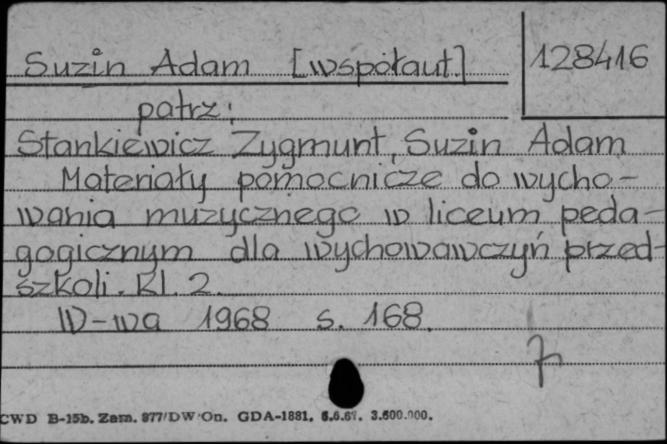 Suzin Adam [współaut.] 128416
patrz:
Stankiewicz Zygmunt, Suzin Adam
Materiały pomocnicze do wycho-
wania muzycznego w liceum peda-
gogicznym dla wychowawczyń przed-
szkoli. Kl. 2.
W-wa 1968 s. 168.
CWD B-15b. Zam. 877/DW/On. GDA-1881. 6.6.67. 3.600.000.